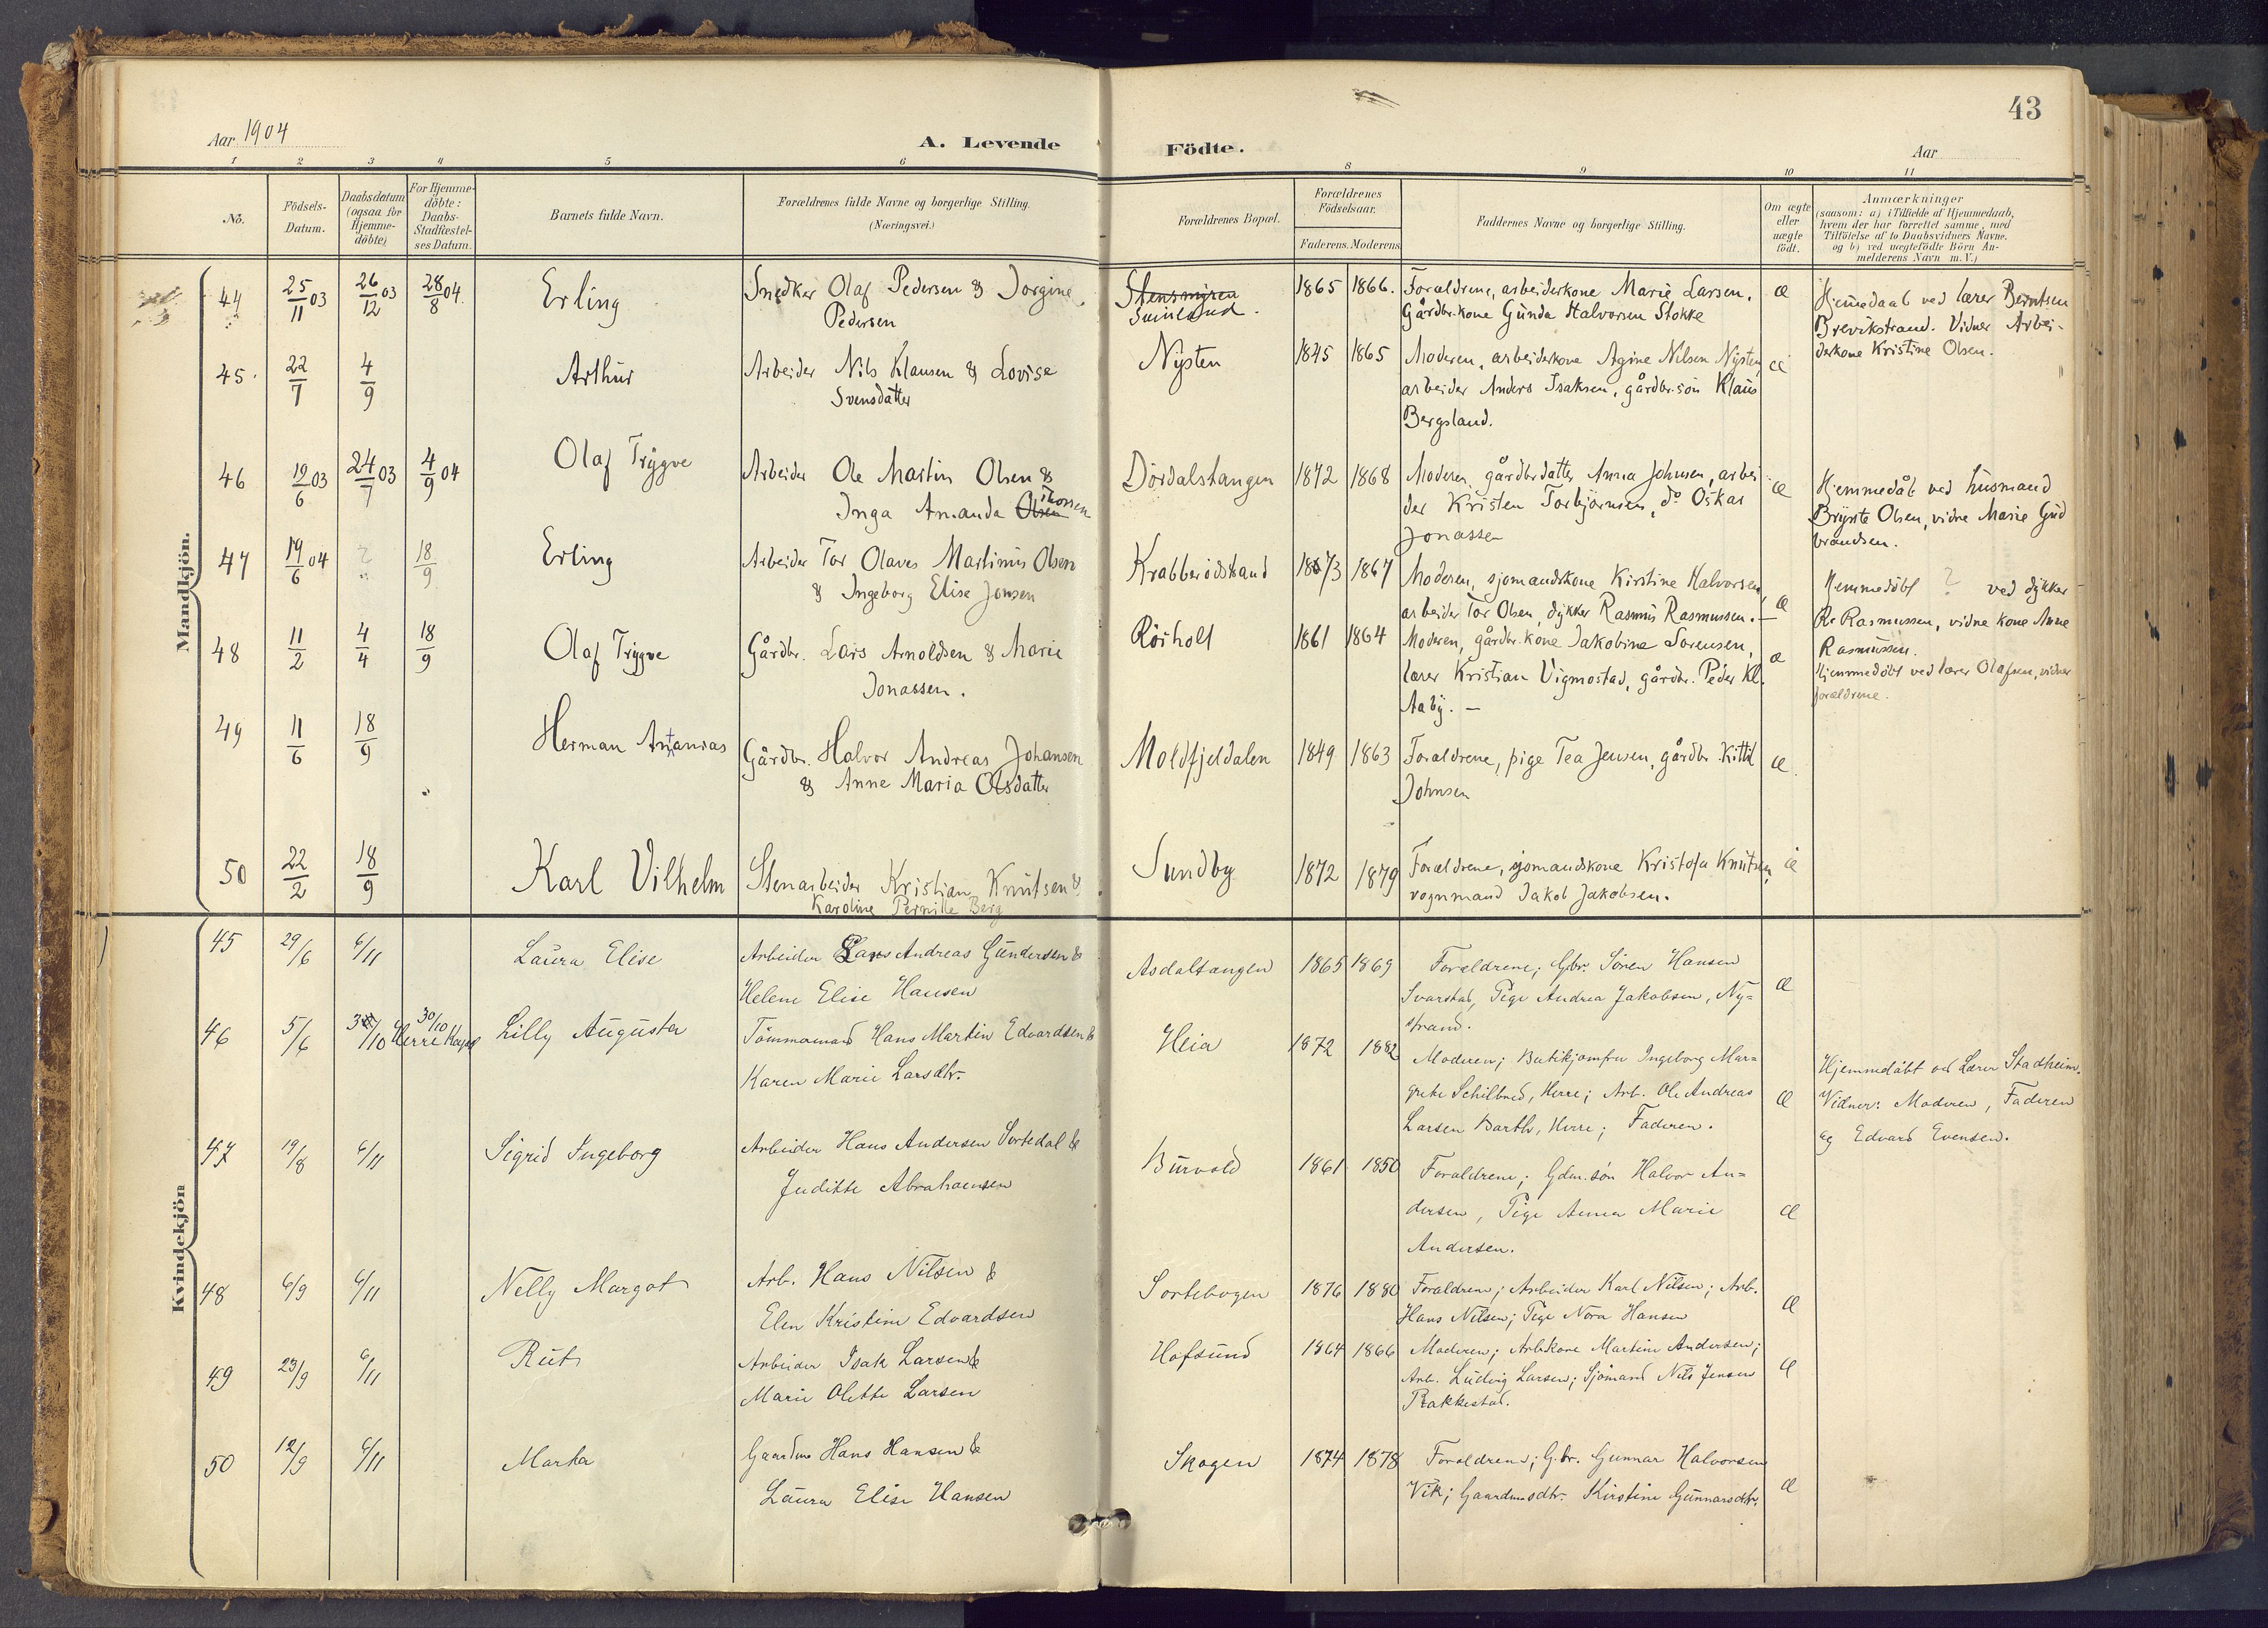 43
Aar 1904
A. Levende Födte.
Aar
1 2 3 4 5 6 8 9 10 11
No.
Födsels-Datum.
Daabsdatum (ogsaa for Hjemme-döbte)
For Hjemme-döbte: Daabs-Stadfæstel-ses Datum.
Barnets fulde Navn.
Forældrenes fulde Navne og borgerlige Stilling.
(Næringsvei.)
Forældrenes Bopæl.
Forældrenes Födselsaar.
Faderens. Moderens
Faddernes Navne og borgerlige Stilling.
Om ægte eller uægte födt.
Anmærkninger
(saasom: a) i Tilfælde af Hjemmedaab,
hvem der har forrettet samme, med
Tilföielse af to Daabsvidners Navne.
og b) ved uægtefödte Börn An-
melderens Navn m.V.)
Mandkjön.
44 25/11 03 26/12 03 28/8 04. Erling Snedker Olaf Pedersen & Jorgine 1865 1866. Forældrene, arbeiderkone Marie Larsen, æ Hjemedaab ved lærer Berntsen
Pedersen Stensmyren Gårdbr.kone Gunda Halvorsen Stokke Brevikstrand. Vidner Arbei-
derkone Kristine Olsen.
45. 22/7 4/9 Arthur Arbeider Nils Klausen & Lovise Nysten 1845 1865 Moderen, arbeiderkone Agine Nilsen Nysten, æ
Svensdatter arbeider Anders Isaksen, gårdbr.sön Klaus
Bergsland.
46 19/6 03 24/7 03 4/9 04 Olaf Trygve Arbeider Ole Martin Olsen & Dördalstangen 1872 1868 Moderen, gårdbrdatter Anna Johnsen, arbei æ Hjemmedåb ved husmand
Inga Amanda Olsen Thorsen der Kristen Torbjörnsen, do Oskar Brynte Olsen, vidne Marie Gud
Jonassen brandsen.
47 19/6 04 ? 18/9 Erling Arbeider Tor Olaves Martinius Olsen Krabberödstrand 1873 1867 Moderen, sjomandskone Kirstine Halvorsen, æ Hjemmedöbt ? ved dykker
& Ingeborg Elise Jonsen arbeider Tor Olsen, dykker Rasmus Rasmussen. — R. Rasmussen, vidne kone Anne
Rasmussen.
48 11/2 4/4 18/9 Olaf Trygve Gårdbr. Lars Arnoldsen & Marie Rörholt 1861 1864 Moderen, gårdbr.kone Jakobine Sorensen, æ Hjemmedöbt ved lærer Olafsen, vidner
Jonassen. lærer Kristian Vigmostad, gårdbr. Peder Kl. forældrene.
Aaby. —
49 11/6 18/9 Herman Gårdbr. Halvor Andreas Johansen Moldfjeldalen 1849 1863 Forældrene, pige Tea Jensen, gårdbr. Kittil æ.
& Anne Maria Olsdatter Johnsen
50 22/2 18/9 Karl Vilhelm Stenarbeider Kristian Knutsen & Sundby 1872 1879 Forældrene, sjomandskone Kristofa Knutsen, æ
Karoline Pernille Berg vognmand Jakob Jakobsen.
Kvindekjön
45 29/6 6/11 Laura Elise Arbeider Lars Andreas Gundersen & Asdaltangen 1865 1869 Forældrene; Gbr. Sören Hansen æ
Helene Elise Hansen Svarstad, Pige Andrea Jakobsen, Ny=
strand.
46 5/6 /10 30/10 Herre Kapel Lilly Augusta Tömmermand Hans Martin Edvardsen & Heia 1872 1882 Moderen; Butikjomfru Ingeborg Mar= æ Hjemmedöbt ved Lærer Stadheim.
Karen Marie Larsdtr. grete Schilbred, Herre; Arb. Ole Andreas Vidner: Moderen, Faderen
Larsen Barth, Herre; Faderen. og Edvard Evensen.
47 19/8 6/11 Sigrid Ingeborg Arbeider Hans Andersen Sortedal & Burvold 1861 1850 Forældrene; Gdm.sön Halvor An=
Juditte Abrahamsen dersen, Pige Anna Marie æ
Andersen.
48 6/9 6/11 Nelly Margot Arb. Hans Nilsen & Sortebogen 1876 1880 Forældrene; Arbeider Karl Nilsen; Arb. æ
Elen Kristine Edvardsen Hans Nilsen; Pige Nora Hansen
49 23/9 6/11 Rut Arbeider Isak Larsen & Hafsund 1864 1866 Moderen; Arb.kone Martine Andersen; æ
Marie Olette Larsen Arb. Ludvig Larsen; Sjömand Nils Jensen
Rakkestad.
50 12/9 6/11 Marta Gaardm. Hans Hansen & Skogen 1874 1878 Forældrene; G.br. Gunnar Halvorsen æ
Laura Elise Hansen Vik; Gaardmsdtr. Kirstine Gunnarsdtr.